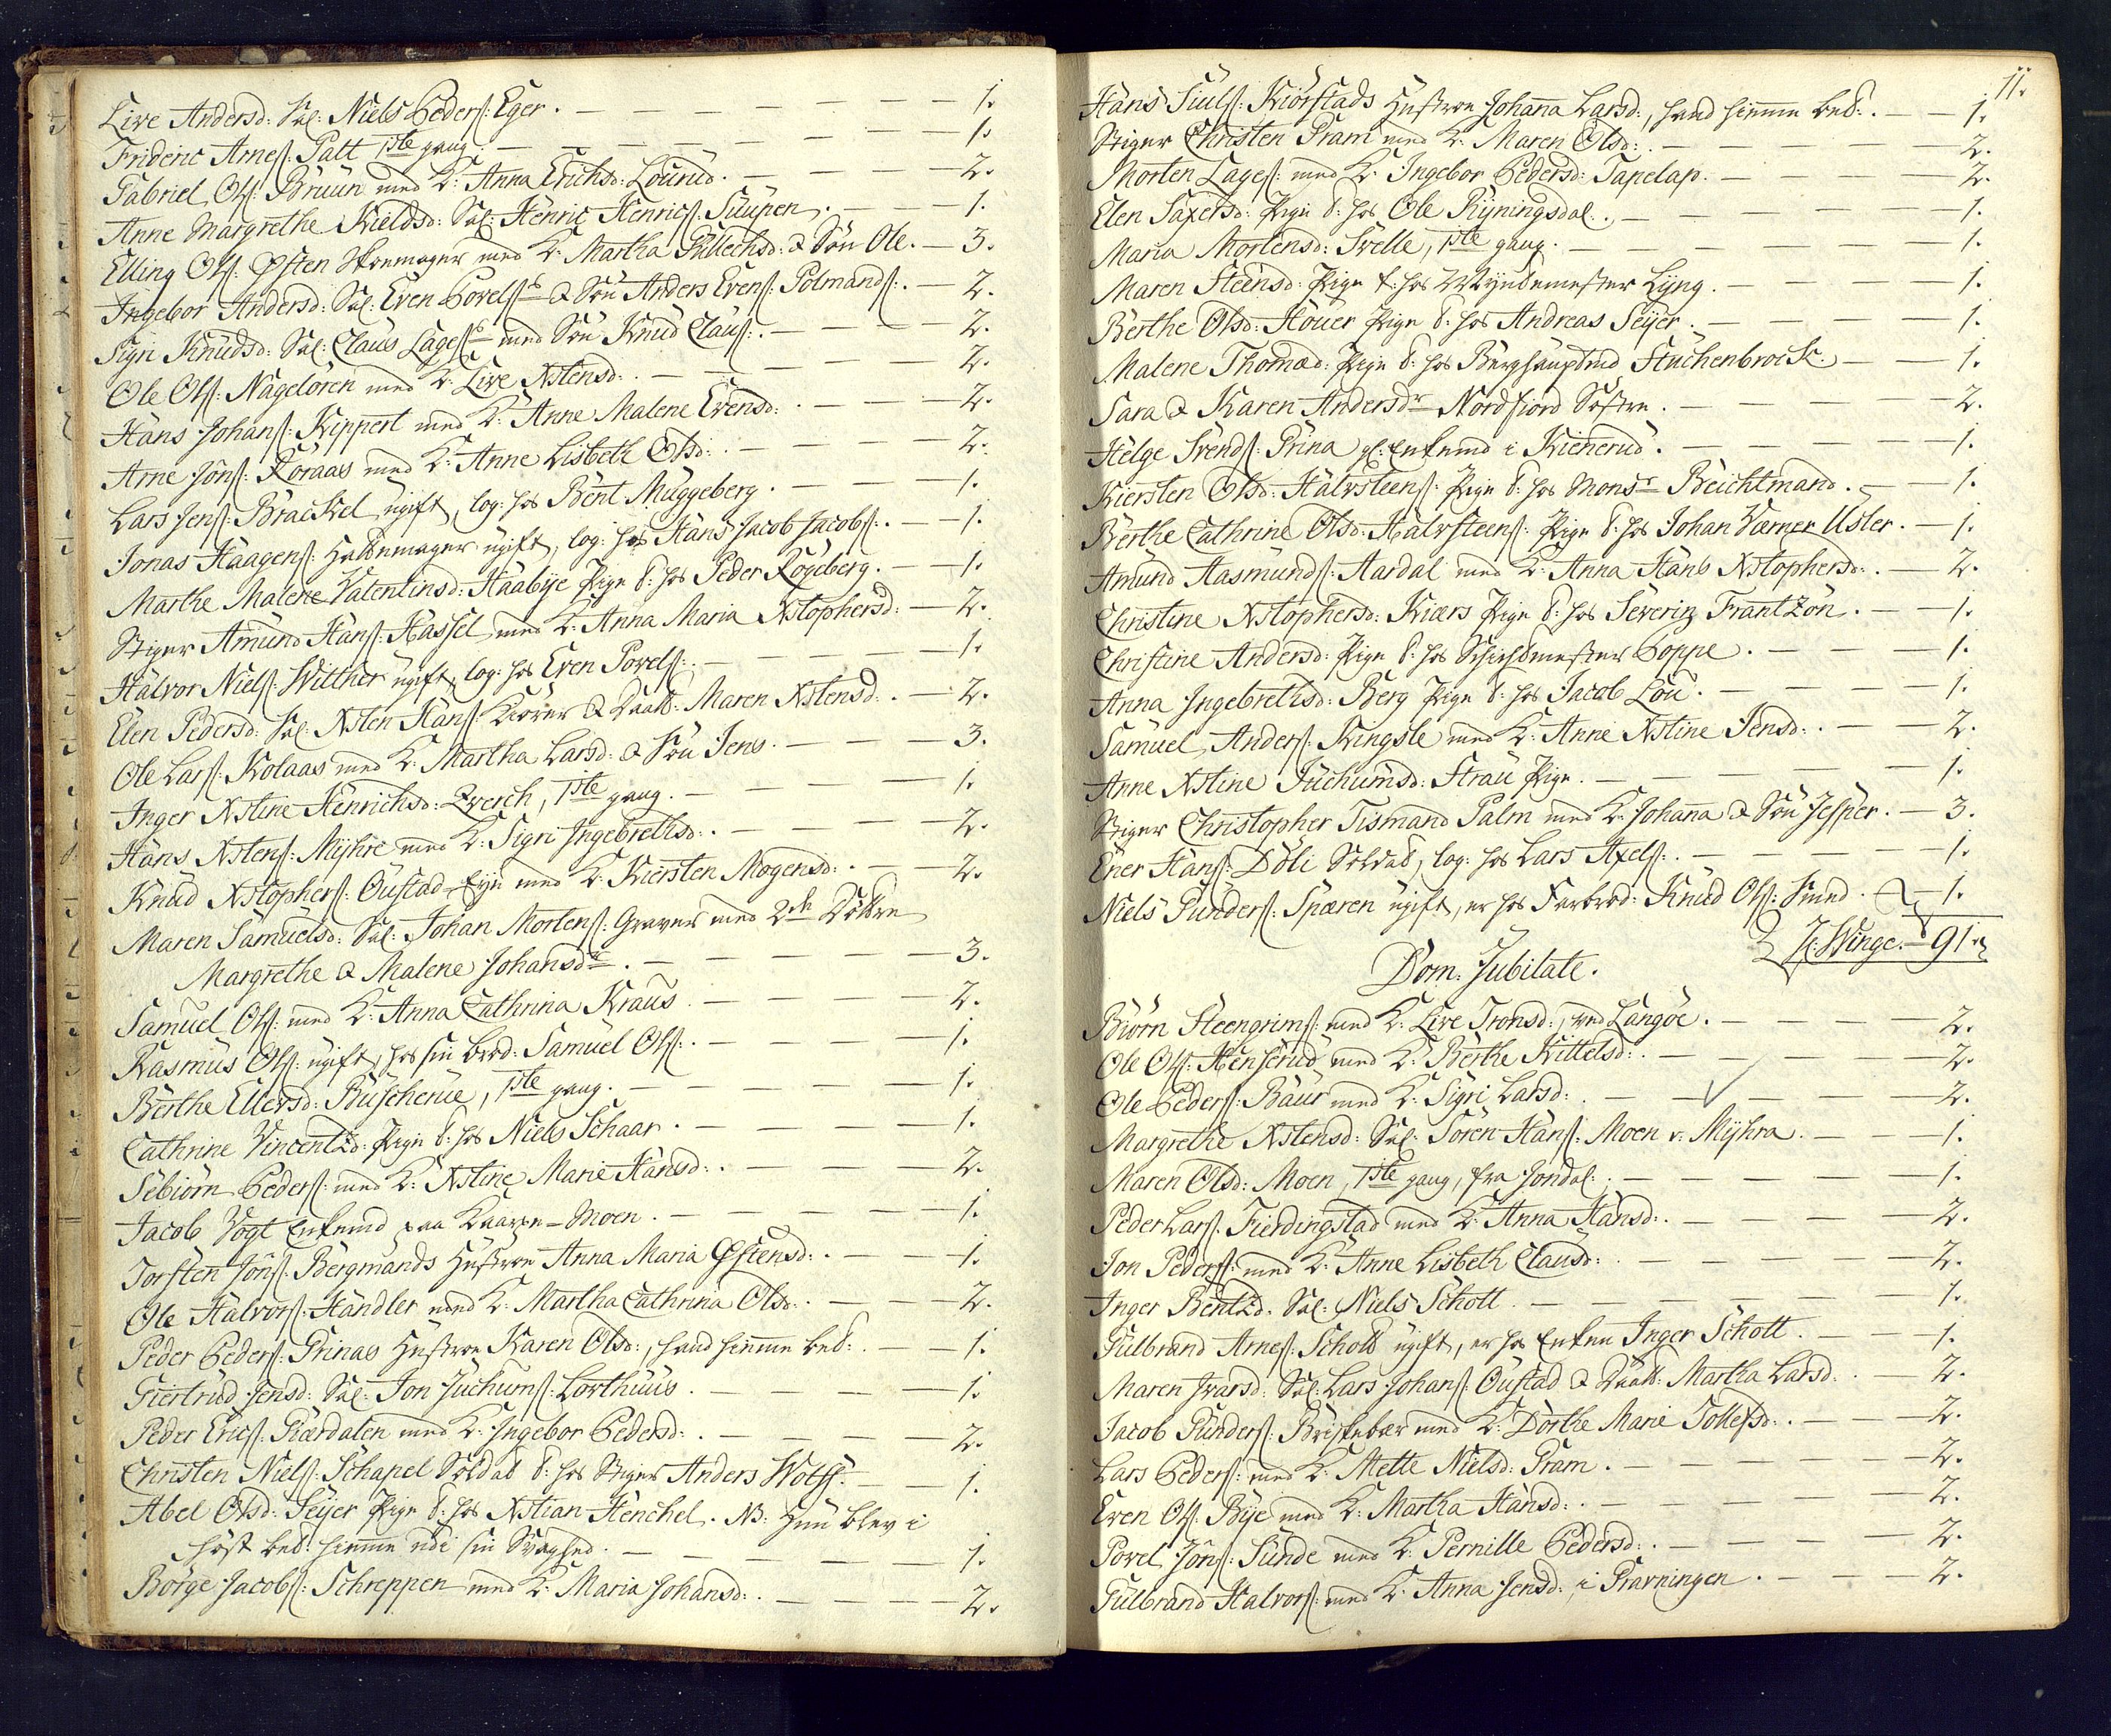 Live Andersd: Sal: Niels Peders: Eger. — 1.
Frideric Arnes: Patt 1ste gang. — 1.
Gabriel Ols: Bruun med K: Anna Erichsd: Lourud. — 2.
Anne Margrethe Kieldsd: Sal: Henric Henrics: Suupen. — 1.
Elling Ols: Østen Skomager med K: Martha Gullechsd: & Søn Ole. — 3.
Ingebor Andersd: Sal: Even Povels: & Søn Anders Evens: Polmands:. — 2.
Sigri Knudsd: Sal: Claus Lages: med Søn Knud Claus:. — 2.
Ole Ols: Nageloren med K: Live Xstensd:. — 2.
Hans Johans: Kippert med K: Anne Malene Evensd:. — 2.
Arne Jons: Roraas med K: Anne Lisbeth Olsd:. — 2.
Lars Jens: Brackel ugift, log: hos Bent Muggeberg. — 1.
Jonas Haagens: ugift, log: hos Hans Jacob Jacobs:. — 1.
Marthe Malene Valentinsd: Haabye Pige t: hos Peder Rögeberg. — 1.
Stiger Amund Hans: Hassel med K: Anna Maria Xstophersd: — 2.
Halvor Niels: Witther ugift, log: hos Even Povels:. — 1.
Elen Pedersd: Sal: Xsten Hans: & Daatt: Maren Xstensd:. — 2.
Ole Lars: Kolaas med K: Martha Larsd: & Søn Jens. — 3.
Inger Xstine Henrichsd: Qverch, 1ste gang. — 1.
Hans Xstens: Myhre med K: Sigri Ingebrethsd:. — 2.
Knud Xstophers: Oustad-Eje med K: Kiersten Mogensd:. — 2.
Maren Samuelsd: Sal: Johan Mortens: Graver med 2de Døttre
Margrethe & Malene Johansd. — 3.
Samuel Ols: med K: Anna Cathrina Kraus. — 2.
Rasmus Ols: ugift, hos sin brod: Samuel Ols:. — 1.
Berthe Ellersd: Buschenie, 1ste gang. — 1.
Cathrine Vincentzd: Pige t: hos Niels Schaar. — 1.
Sebiörn Peders: med K: Xstine Marie Hansd:. — 2.
Jacob Vogt Enkemand paa -Moen. — 1.
Torsten Jons: Bergmands Hustroe Anna Maria Østensd:. — 1.
Ole Halvors: Handler med K: Martha Cathrina Olsd:. — 2.
Peder Peders: Prinas Hustroe Karen Olsd:, hand hiemme bet:. — 1.
Giertrud Jensd: Sal: Jon Juchums: Lorthuus. — 1.
Peder Erics: Giærdalen med K: Ingebor Pedersd:. — 2.
Christen Niels: Schapel Soldat t: hos Stiger Anders Wolff. — 1.
Abel Olsd: Seyer Pige t: hos Xstian Henchel. NB: Hun blev i
høst bet: hiemme udi sin Svaghed. — 1.
Börge Jacobs: Schreppen med K: Maria Johansd:. — 2.
11.
Hans Siuls: Kiörstads Hustroe Johanna Larsd:, hand hiemme bet:. — 1.
Stiger Christen Pram med K: Maren Olsd:. — 2.
Morten Lages: med K: Ingebor Pedersd: Tapelap. — 2.
Elen Saxersd: Pige t: hos Ole Ryningsdal. — 1.
Maria Mortensd: Svelle, 1ste gang. — 1.
Maren Steensd: Pige t: hos Myndtmester Lyng. — 1.
Berthe Olsd: Houer Pige t: hos Andreas Seyer. — 1.
Malene Thomæd: Pige t: hos Berghauptmd Stuchenbrock. — 1.
Sara & Karen Andersdr Nordfiord Søstre. — 2.
Helge Svends: Prina gl: Enkemd i Kienerud. — 1.
Kiersten Olsd: Halvsteens: Pige t: hos Monsr Beichtmand. — 1.
Berthe Cathrine Olsd: Halvsteens: Pige t: hos Johan Værner Usler. — 1.
Amund Aasmunds: Aardal med K: Anna Hans Xstophersd:. — 2.
Christine Xstophersd: Kiærs Pige t: hos Severin Frantzön. — 1.
Christine Andersd: Pige t: hos Schichtmester Poppe. — 1.
Anna Ingebrethsd: Berg Pige t: hos Jacob Lou. — 1.
Samuel Anders: Kingsle med K: Anne Xstine Jensd:. — 2.
Anne Xstine Juchumsd: Strau Pige. — 1.
Stiger Christopher Tismand Palm med K: Johanna & Søn Jesper. — 3.
Ener Hans: Döli Soldat, log: hos Lars Axels:. — 1.
Niels Gunders: Sparen ugift, er hos Farbrod: Knud Ols: Smed. — 1.
H: Winge. 91.
Dom: Jubilate.
Biörn Steengrims: med K: Live Tronsd:, ved Langöe. — 2.
Ole Ols: Henserud med K: Berthe Kittelsd:. — 2.
Ole Peders: Baur med K: Sigri Larsd:. — 2.
Margrethe Xstensd: Sal: Sören Hans: Moen v. Myhra. — 1.
Maren Olsd: Moen, 1ste gang, fra Jondal. — 1.
Peder Lars: Fierdingstad med K: Anna Hansd:. — 2.
Jon Peders: med K: Anne Lisbeth Clausd:. — 2.
Inger Bentzd: Sal: Niels Schott. — 1.
Gulbrand Arnes: Schott ugift, er hos Enken Inger Schott. — 1.
Maren Ivarsd: Sal: Lars Johans: Oustad & Daatt: Martha Larsd:. — 2.
Jacob Gunders: Briskebær med K: Dorthe Marie Tollefsd:. — 2.
Lars Peders: med K: Mette Nielsd: Pram. — 2.
Even Ols: Bye med K: Martha Hansd:. — 2.
Povel Jons: Sunde med K: Pernille Pedersd:. — 2.
Gulbrand Halvors: med K: Anna Jensd: i Gravningen. — 2.